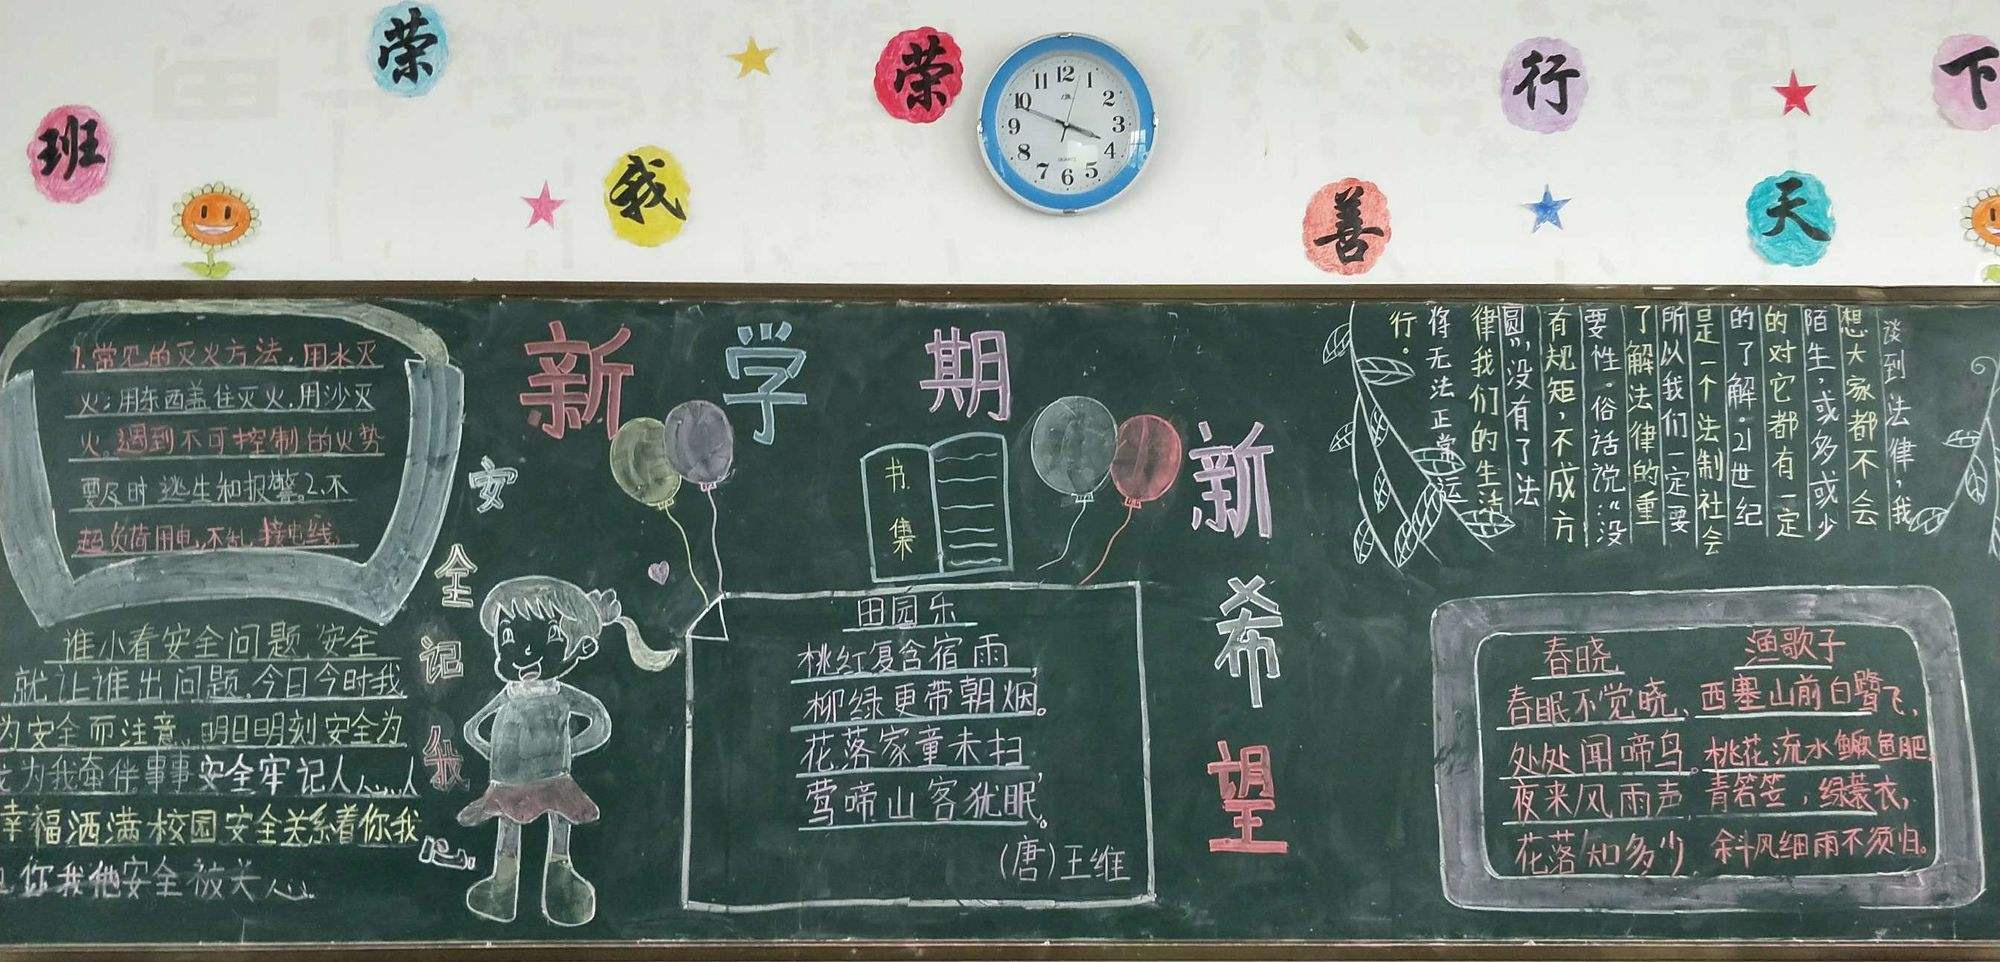 班
荣
我
荣
12
1
2
3
4
5
6
7
8
9
10
11
QUARTZ
善
行
天
下
新学期
新希望
1.常见的灭火方法,用水灭
火;用东西盖住灭火,用沙灭
火。遇到不可控制的火势
要尽时逃生和报警。2.不
超负荷用电,不乱接电线,
安全记我心
谁小看安全问题,安全
就让谁出问题,今日今时我
为安全而注意,明日明刻安全为
为我牵伴事事安全牢记人人
幸福洒满校园安全关系着你我
你我他安全被关人心。
书集
田园乐
桃红复含宿雨,
柳绿更带朝烟。
花落家童未扫,
莺啼山客犹眠。
(唐)王维
谈到法律,我
想大家都不会
陌生,或多或少
的对它都有一定
的了解。21世纪
是一个法制社会
所以我们一定要
了解法律的重
要性。俗话说:“没
有规矩,不成方
圆”,没有了法
律我们的生活
将无法正常运
行。
春晓
春眠不觉晓,
处处闻啼鸟。
夜来风雨声,
花落知多少,
渔歌子
西塞山前白鹭飞,
桃花流水鳜鱼肥。
青箬笠,绿蓑衣,
斜风细雨不须归。